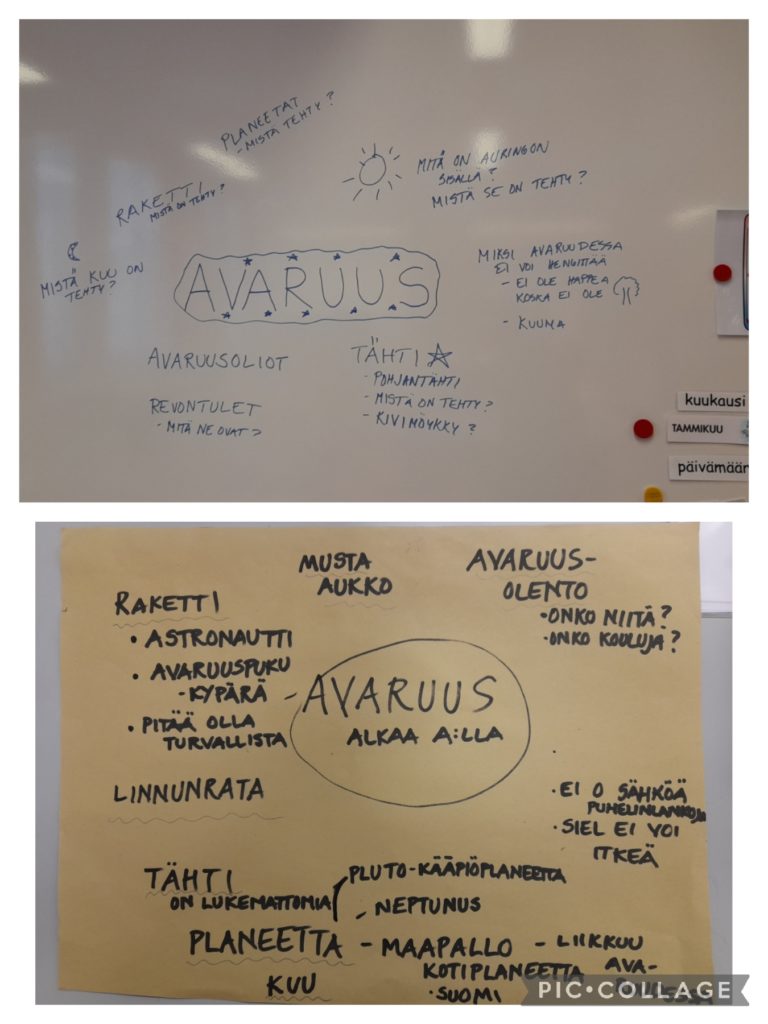 PLANEETAT
- MISTÄ TEHTY?
RAKETTI
MISTÄ ON TEHTY?
MITÄ ON AURINGON
SISÄLLÄ?
MISTÄ SE ON TEHTY?
MISTÄ KUU ON
TEHTY?
AVARUUS
MIKSI AVARUUDESSA
EI VOI HENGITTÄÄ
- EI OLE HAPPEA
KOSKA EI OLE
- KUUMA
AVARUUSOLIOT
REVONTULET
- MITÄ NE OVAT?
TÄHTI
- POHJANTÄHTI
- MISTÄ ON TEHTY?
- KIVIMÖYKKY?
kuukausi
TAMMIKUU
päivämäär
MUSTA
AUKKO
AVARUUS-
OLENTO
• ONKO NIITÄ?
• ONKO KOULUJA?
RAKETTI
• ASTRONAUTTI
• AVARUUSPUKU
- KYPÄRÄ
• PITÄÄ OLLA
TURVALLISTA
AVARUUS
ALKAA A:LLA
LINNUNRATA
• EI O SÄHKÖÄ
PUHELINLANKOJA
• SIEL EI VOI
ITKEÄ
TÄHTI
ON LUKEMATTOMIA
PLUTO-KÄÄPIÖPLANEETTA
- NEPTUNUS
PLANEETTA - MAAPALLO - LIIKKUU
KOTIPLANEETTA AVA-
KUU • SUOMI
PIC•COLLAGE